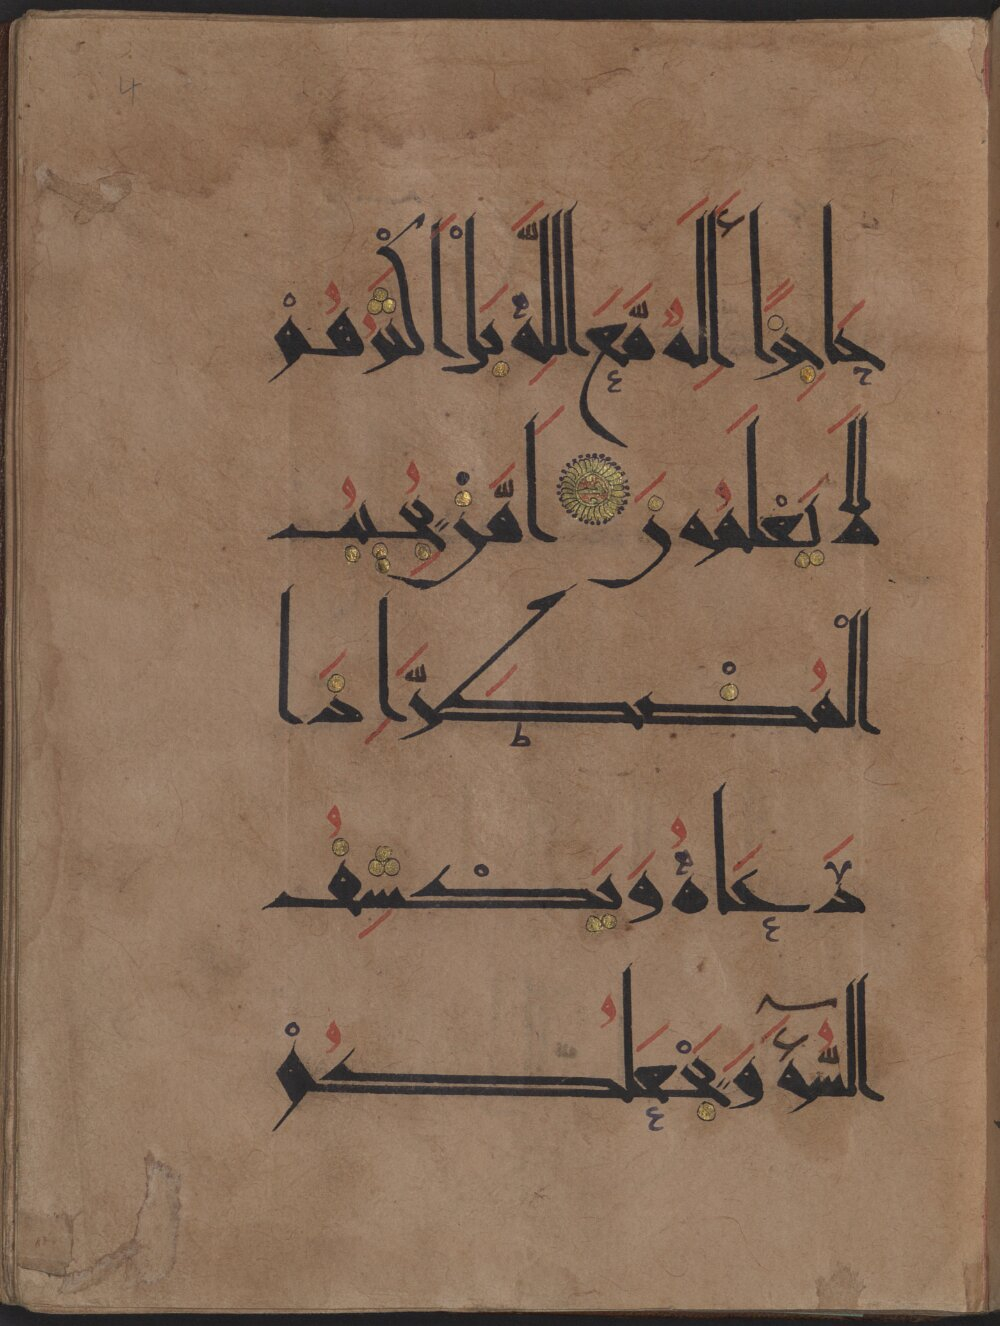 4
حَاجِزًا أَإِلَٰهٌ مَّعَ اللَّهِ بَلْ أَكْثَرُهُمْ
لَا يَعْلَمُونَ أَمَّنْ يُجِيبُ
الْمُضْطَرَّ إِذَا
دَعَاهُ وَيَكْشِفُ
السُّوٓءَ وَيَجْعَلُكُمْ